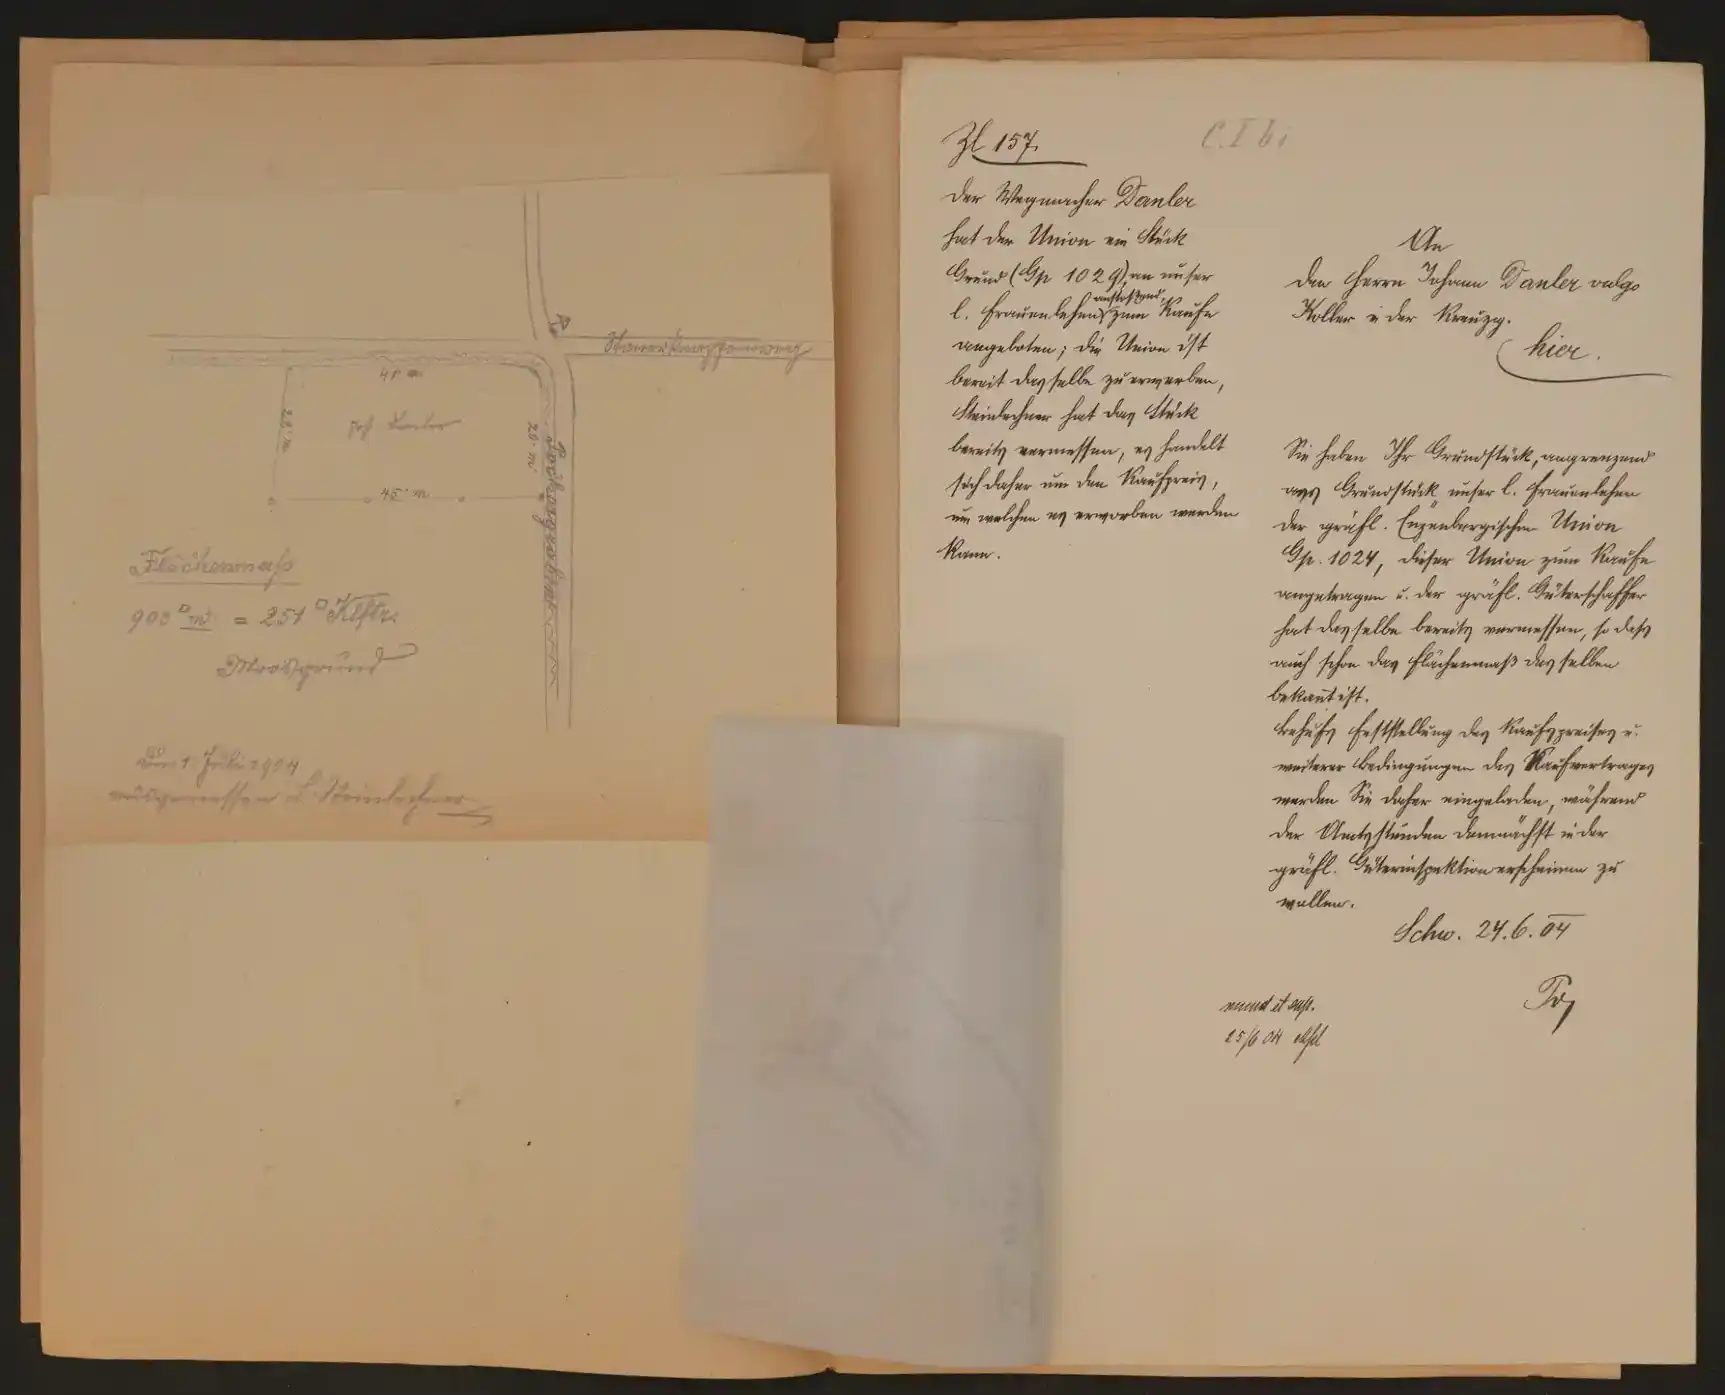 45 m
Joh Danler
20 m
20 m
45 m
Flächenmass
900 □ m = 251 □ Klftr.
Moosgrund
am 1 Juli 1904
ausgemessen
Zl 157.
C. I b 1
Der Wegmacher Danler
hat der Union ein Stück
Grund (Gp 1029) an unser
l. Frauenlehen anstoßend, zum Kaufe
angeboten; die Union ist
bereit dasselbe zu erwerben,
Steinlechner hat das Stück
bereits vermessen, es handelt
sich daher um den Kaufpreis,
um welchen es erworben werden
kann.
An
den Herrn Johann Danler vulgo
Koller in der Kreuzg.
hier.
Sie haben Ihr Grundstück, angrenzend
ans Grundstück unser l. Frauenlehen
der gräfl. Enzenbergischen Union
Gp. 1024, dieser Union zum Kaufe
angetragen u. der gräfl. Güterschaffer
hat dasselbe bereits vermessen, so dass
auch schon das Flächenmaß desselben
bekannt ist.
Behufs Feststellung des Kaufspreises u.
weiterer Bedingungen des Kaufvertrages
werden Sie daher eingeladen, während
der Amtsstunden demnächst in der
gräfl. Güterinspektion erscheinen zu
wollen.
Schw. 24.6.04
mund et exp.
25/6 04